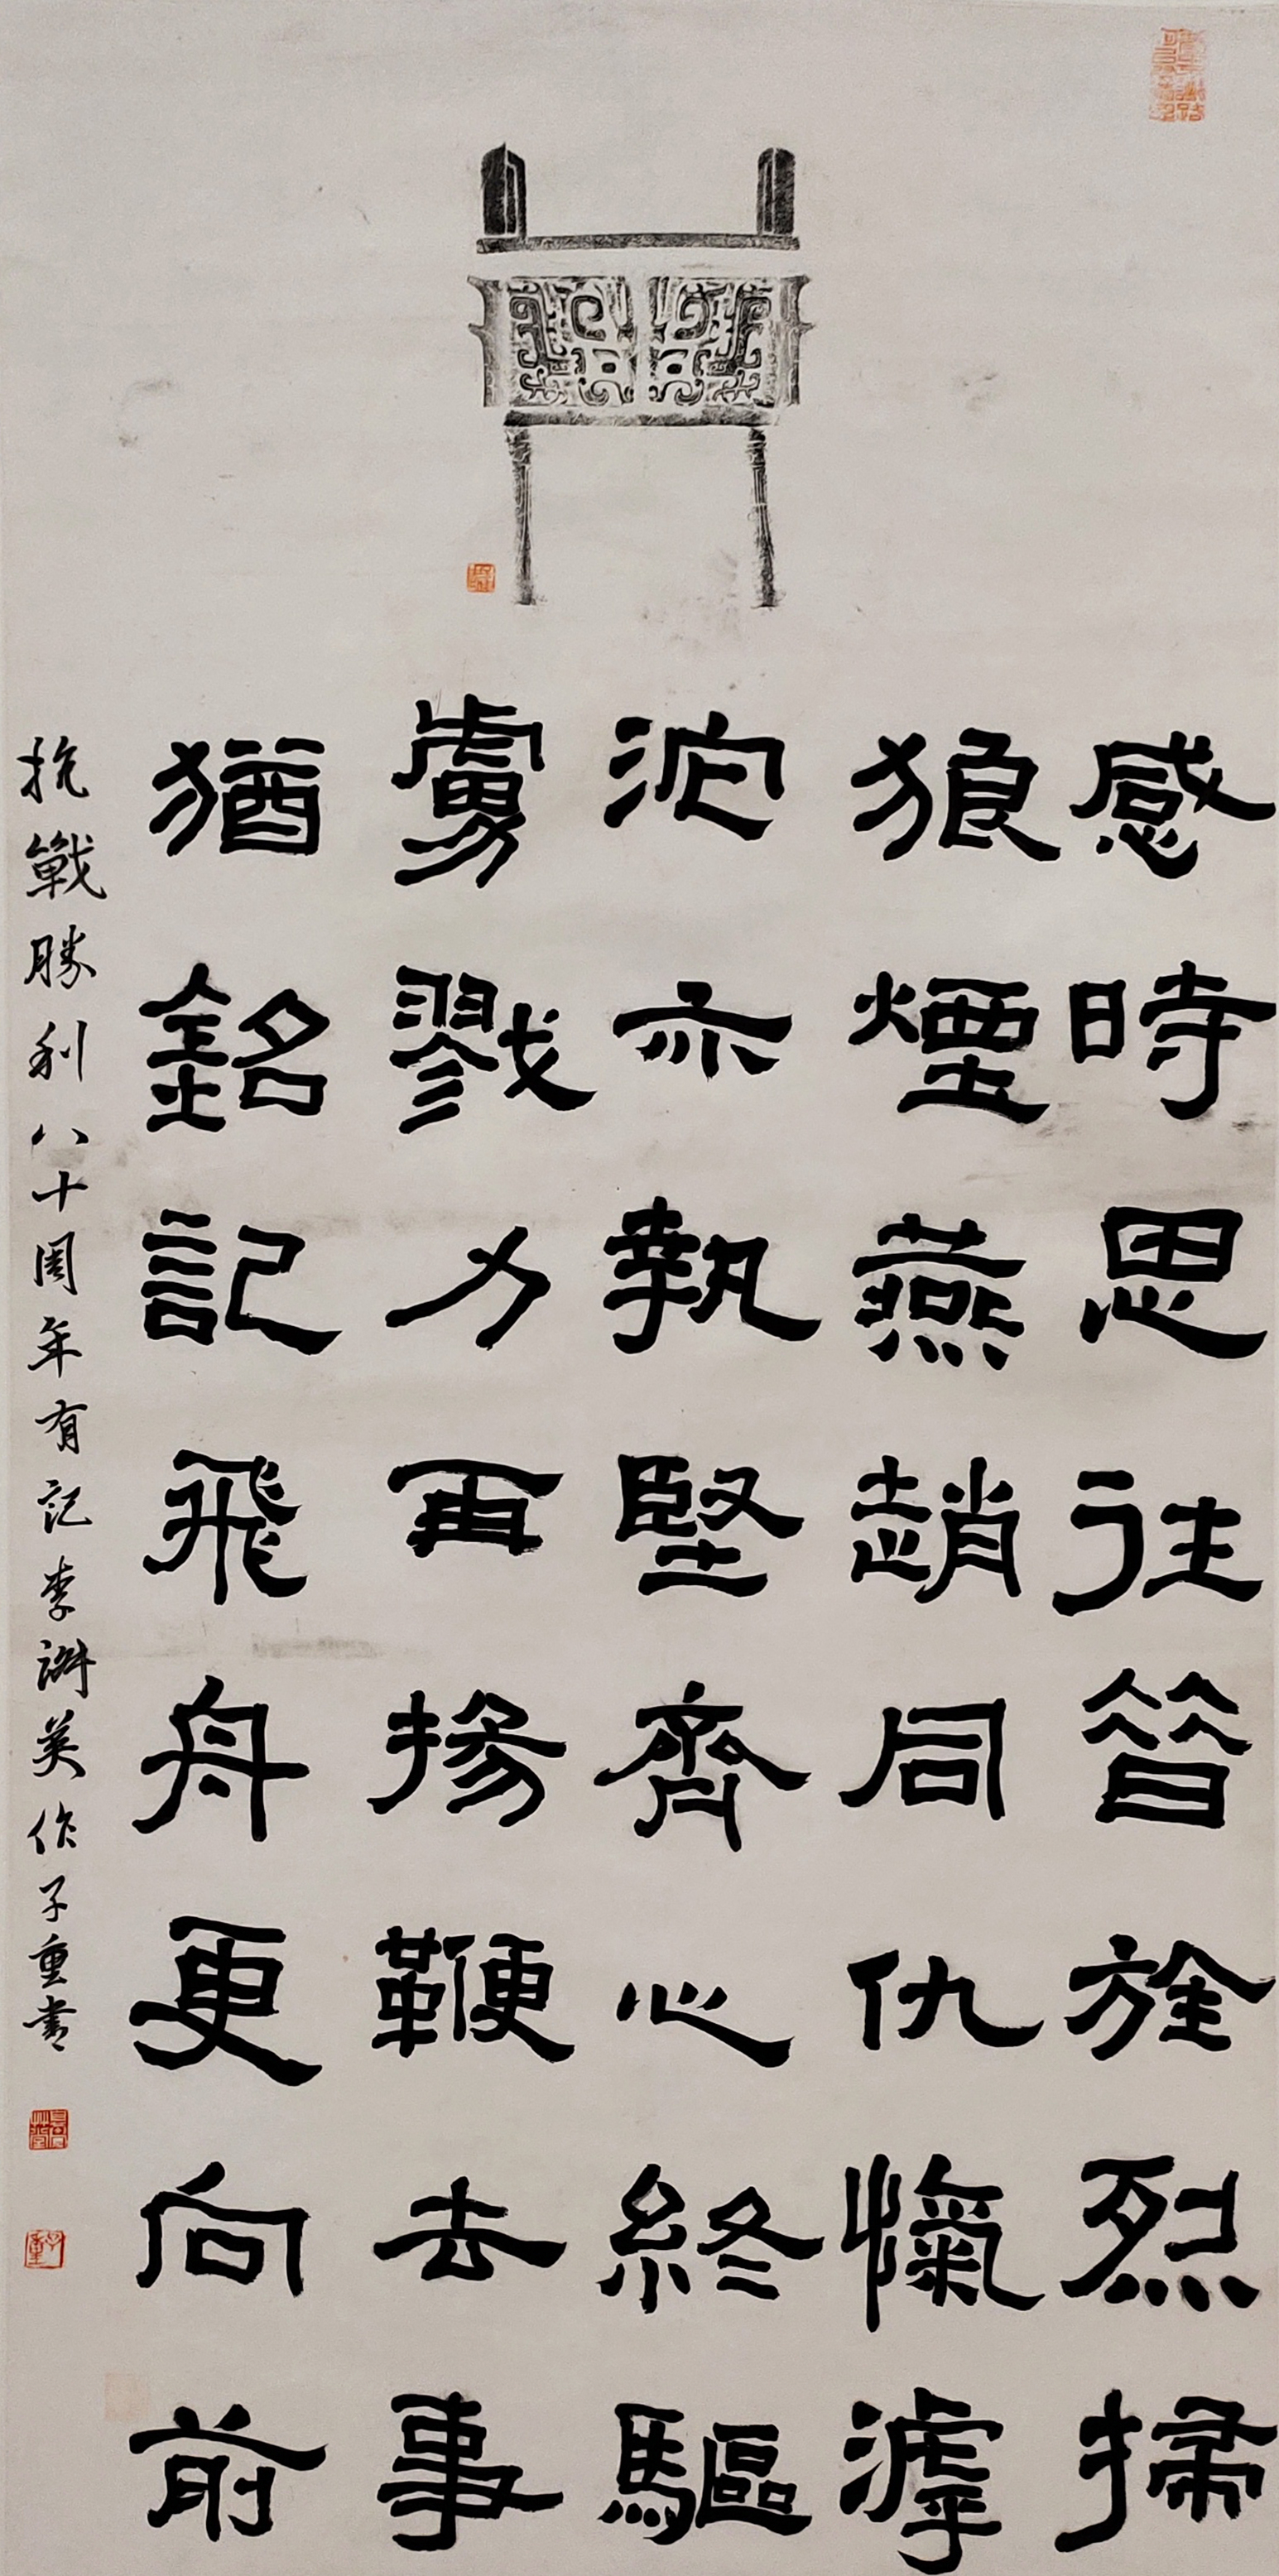 感時思往昝旌烈掃
狼煙燕趙同仇愾滹
沱亦執堅齊心終驅
虜戮力再揚鞭去事
猶銘記飛舟更向前
抗戰勝利八十周年有記李謝英作子重書